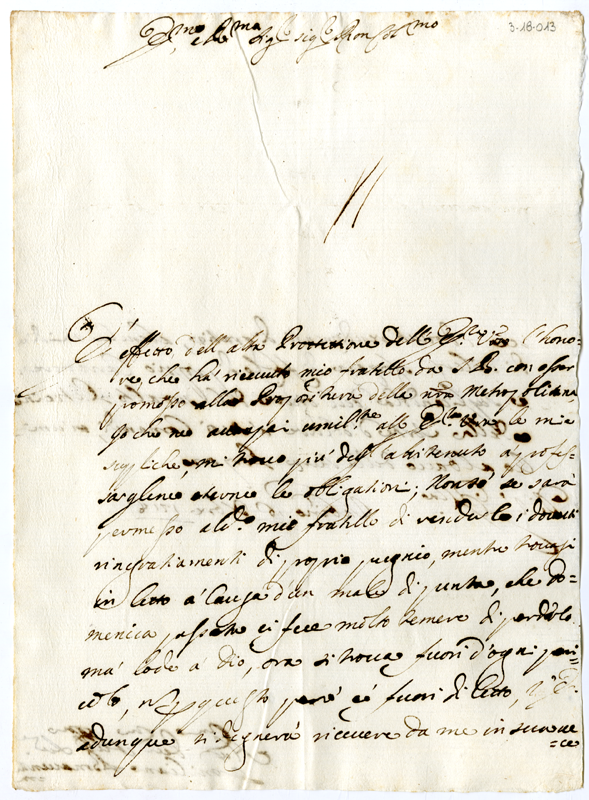 3-18-013
Em.mo e Rev.mo Sig.r Sig.r Pron Col.mo
È effetto dell'alta Protettione dell' Em.za V.ra l'hono-
re, che ha riceuuto mio fratello da S. B. con esser
promosso alla Propositura della nra Metropolitana
che ne umil.te all' Em.za V.ra le mie
mi trouo più dell' attenuto a profes-
sargliene eterne le obligationi; Non sò se sarà
permesso al d.o mio fratello di renderle i douuti
ringratiamenti di proprio pugnio, mentre trouasi
in letto à causa d'un male di punta, che Do-
menica passata ci fece molto temere di perderlo
ma' lode a Dio, ora si troua fuori d'ogni peri-
colo, nè p questo però è fuori di letto,
adunque si degnerà riceuere da me in sua ue-
=ce